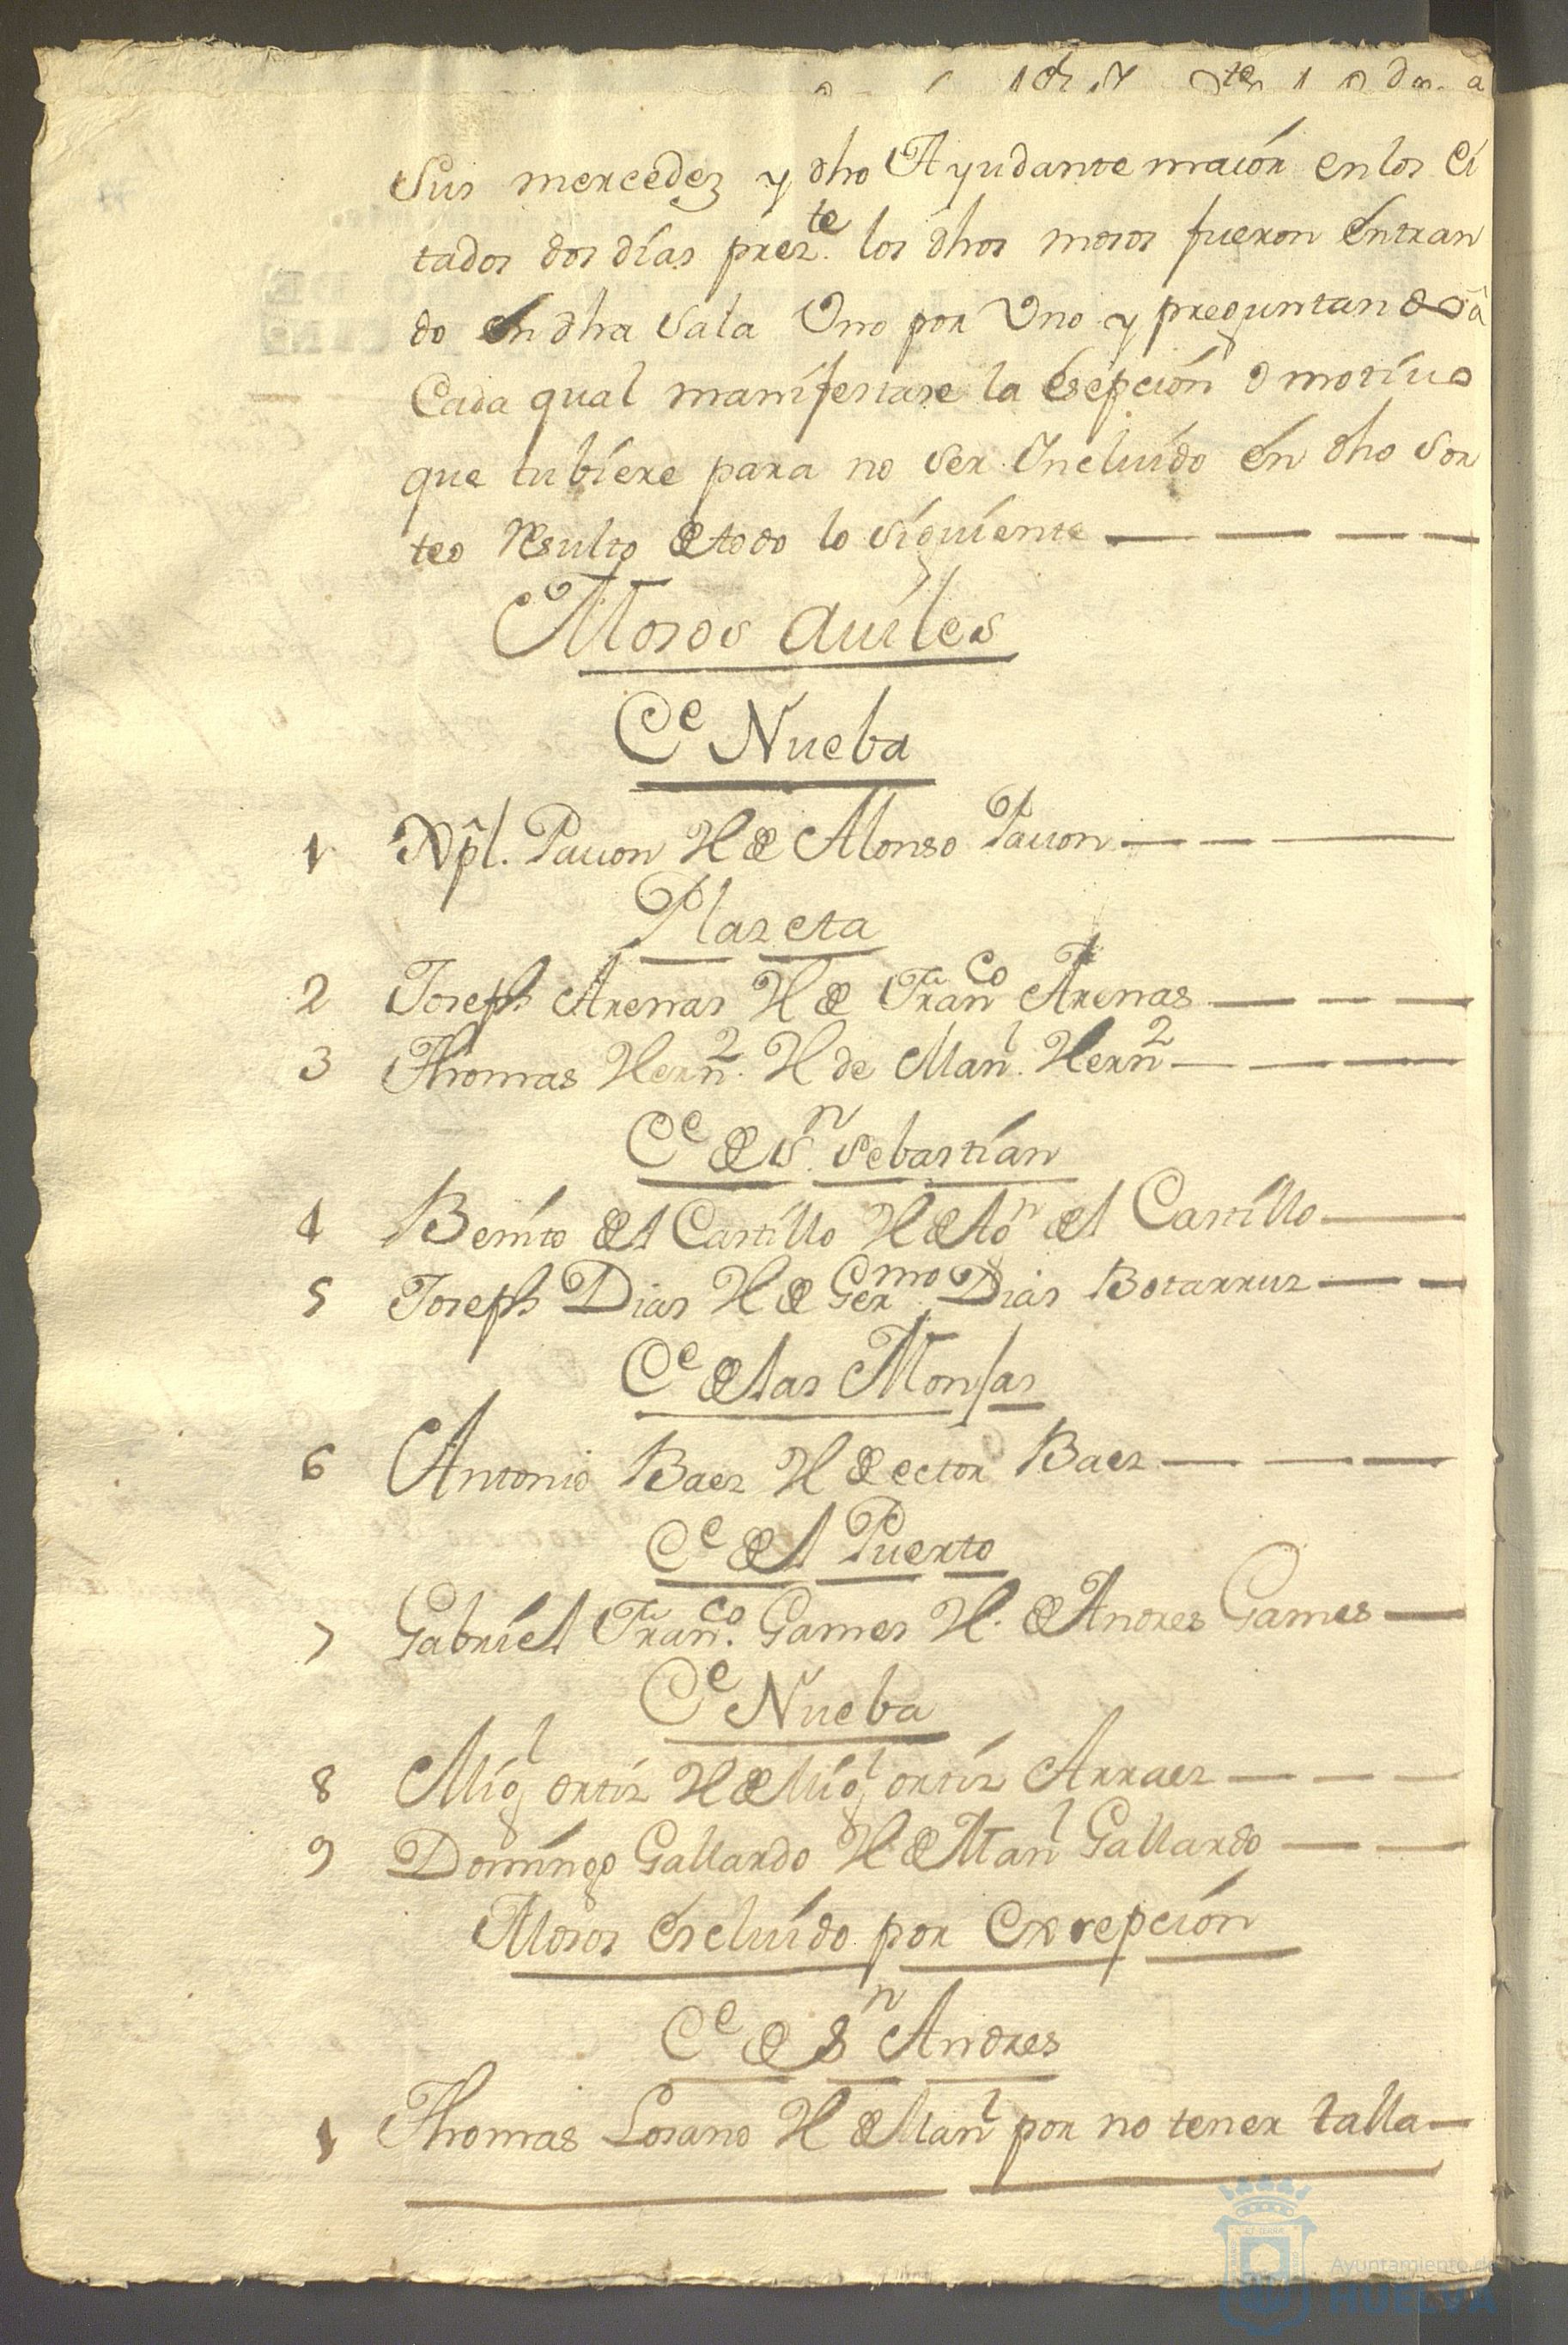 Sus mercedez y dho Ayudante maior en los ci
tados dos días prez.te los dhos mosos fueron entran
do en dha Sala Vno por Vno y preguntandosâ
Cada qual manifestase la Esepción o motiuo
que tubiere para no ser Yncluído en dho sor
teo Resulto de todo lo síguíente
Mosos auiles
Ce Nueba
1 Xpl. Pauon H de Alonso Pauon
Plazeta
2 Joseph Arenas H de Franco Arenas
3 Thomas Hernz. H de Manl. Hernz
Ce de Sn. Sebastían
4 Beníto del Castíllo H de Ton del Castíllo
5 Joseph Dias H de Germo. Dias Botarruz
Ce de las Monjas
6 Antonio Baez H de ector Baez
Ce del Puerto
7 Gabríel Franco. Games H. de Andres Games
Ce Nueba
8 Migl ortiz H de Migl ortiz Arraez
9 Domíngo Gallardo H de Manl Gallardo
Mosos escluído por Excepción
Ce de Sn Andres
1 Thomas Losano H de Manl por no tener talla
Ayuntamiento de
HUELVA